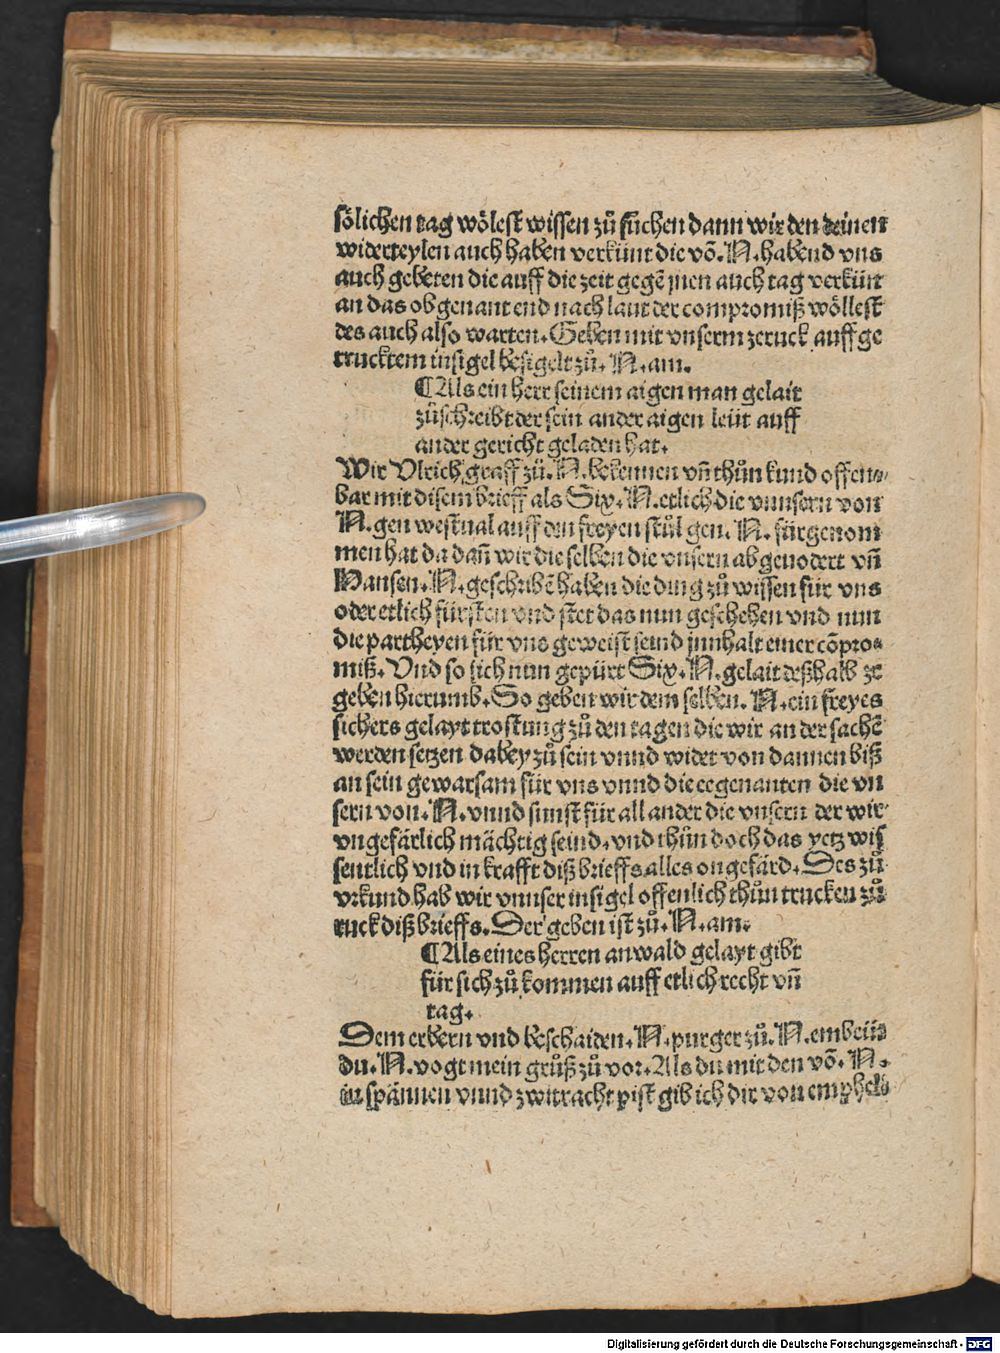 sölichen tag wölest wissen zů sůchen dann wir den deinen
widerteylen auch haben verkünt die võ. N. habend vns
auch gebeten die auff die zeit gegẽ jnen auch tag verkünt
an das ob genant end nach laut der compromiß wöllest
des auch also warten. Geben mit vnserm zeruck auff ge
trucktem insigel besigelt zů. N. am.
¶Als ein herr seinem aigen man gelait
zůschreibt der sein ander aigen leüt auff
ander gericht geladen hat.
Wir Vlrich graff zů. N. bekennen vñ thůn kund offen⸗
bar mit disem brieff als Six. N. etlich die vnnsern von
N. gen westual auff den freyen stůl gen. N. fürgenom
men hat da dañ wir die selben die vnsern abgeuodert vñ
Hansen. N. geschribẽ haben die ding zů wissen für vns
oder etlich fürsten vnd stet das nun geschehen vnd nun
die partheyen für vns geweist seind jnnhalt einer cõpro⸗
miß. Vnd so sich nun gepürt Six. N. gelait deßhalb ze
geben hierumb. So geben wir dem selben. N. ein freyes
sichers gelayt trostung zů den tagen die wir an der sachẽ
werden setzen dabey zů sein vnnd wider von dannen biß
an sein gewarsam für vns vnnd die eegenanten die vn
sern von. N. vnnd sunst für all ander die vnsern der wir
vngefärlich mächtig seind. vnd thůn doch das yetz wis
sentlich vnd in krafft diß brieffs alles ongefärd. Des zů
vrkund hab wir vnnser insigel offenlich thůn trucken zů
ruck diß brieffs. Der geben ist zů. N. am.
¶Als eines herren anwald gelayt gibt
für sich zů kommen auff etlich recht vñ
tag.
Dem erbern vnd beschaiden. N. purger zů. N. embeüt
du. N. vogt mein grůß zů vor. Als du mit den võ. N.
in spännen vnnd zwitracht pist gib ich dir von
Digitalisierung gefördert durch die Deutsche Forschungsgemeinschaft - DFG